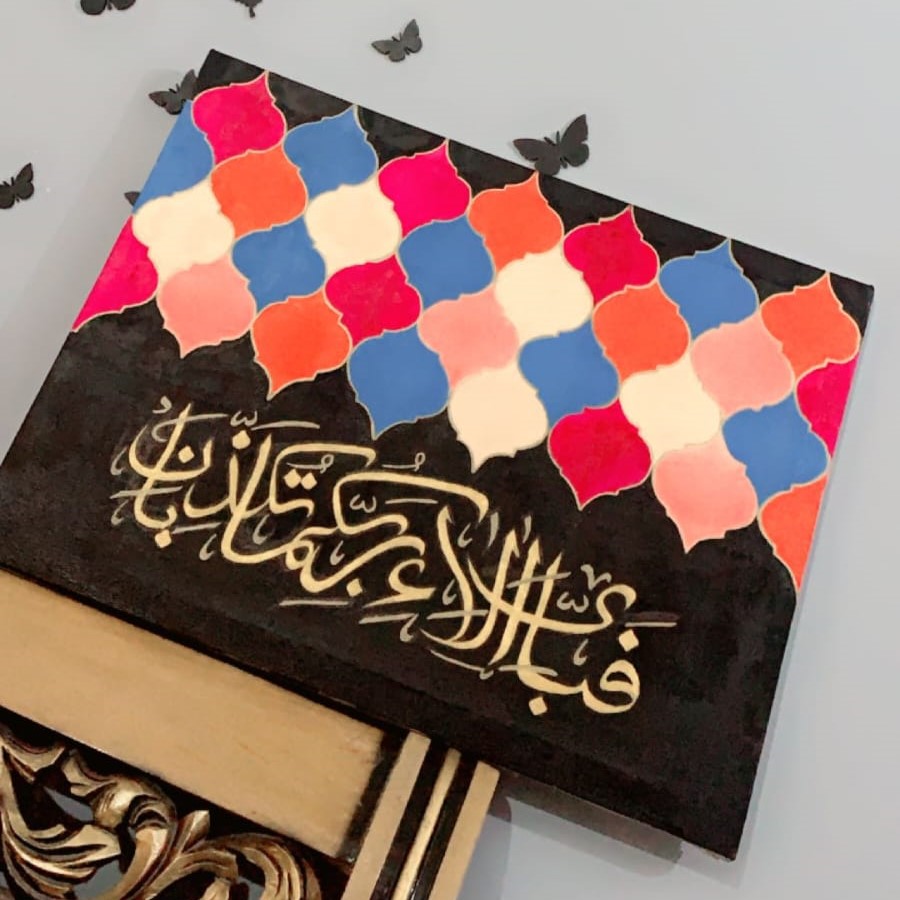 فَبِأَيِّ اٰلَاۤءِ رَبِّكُمَا تُكَذِّبَانِ